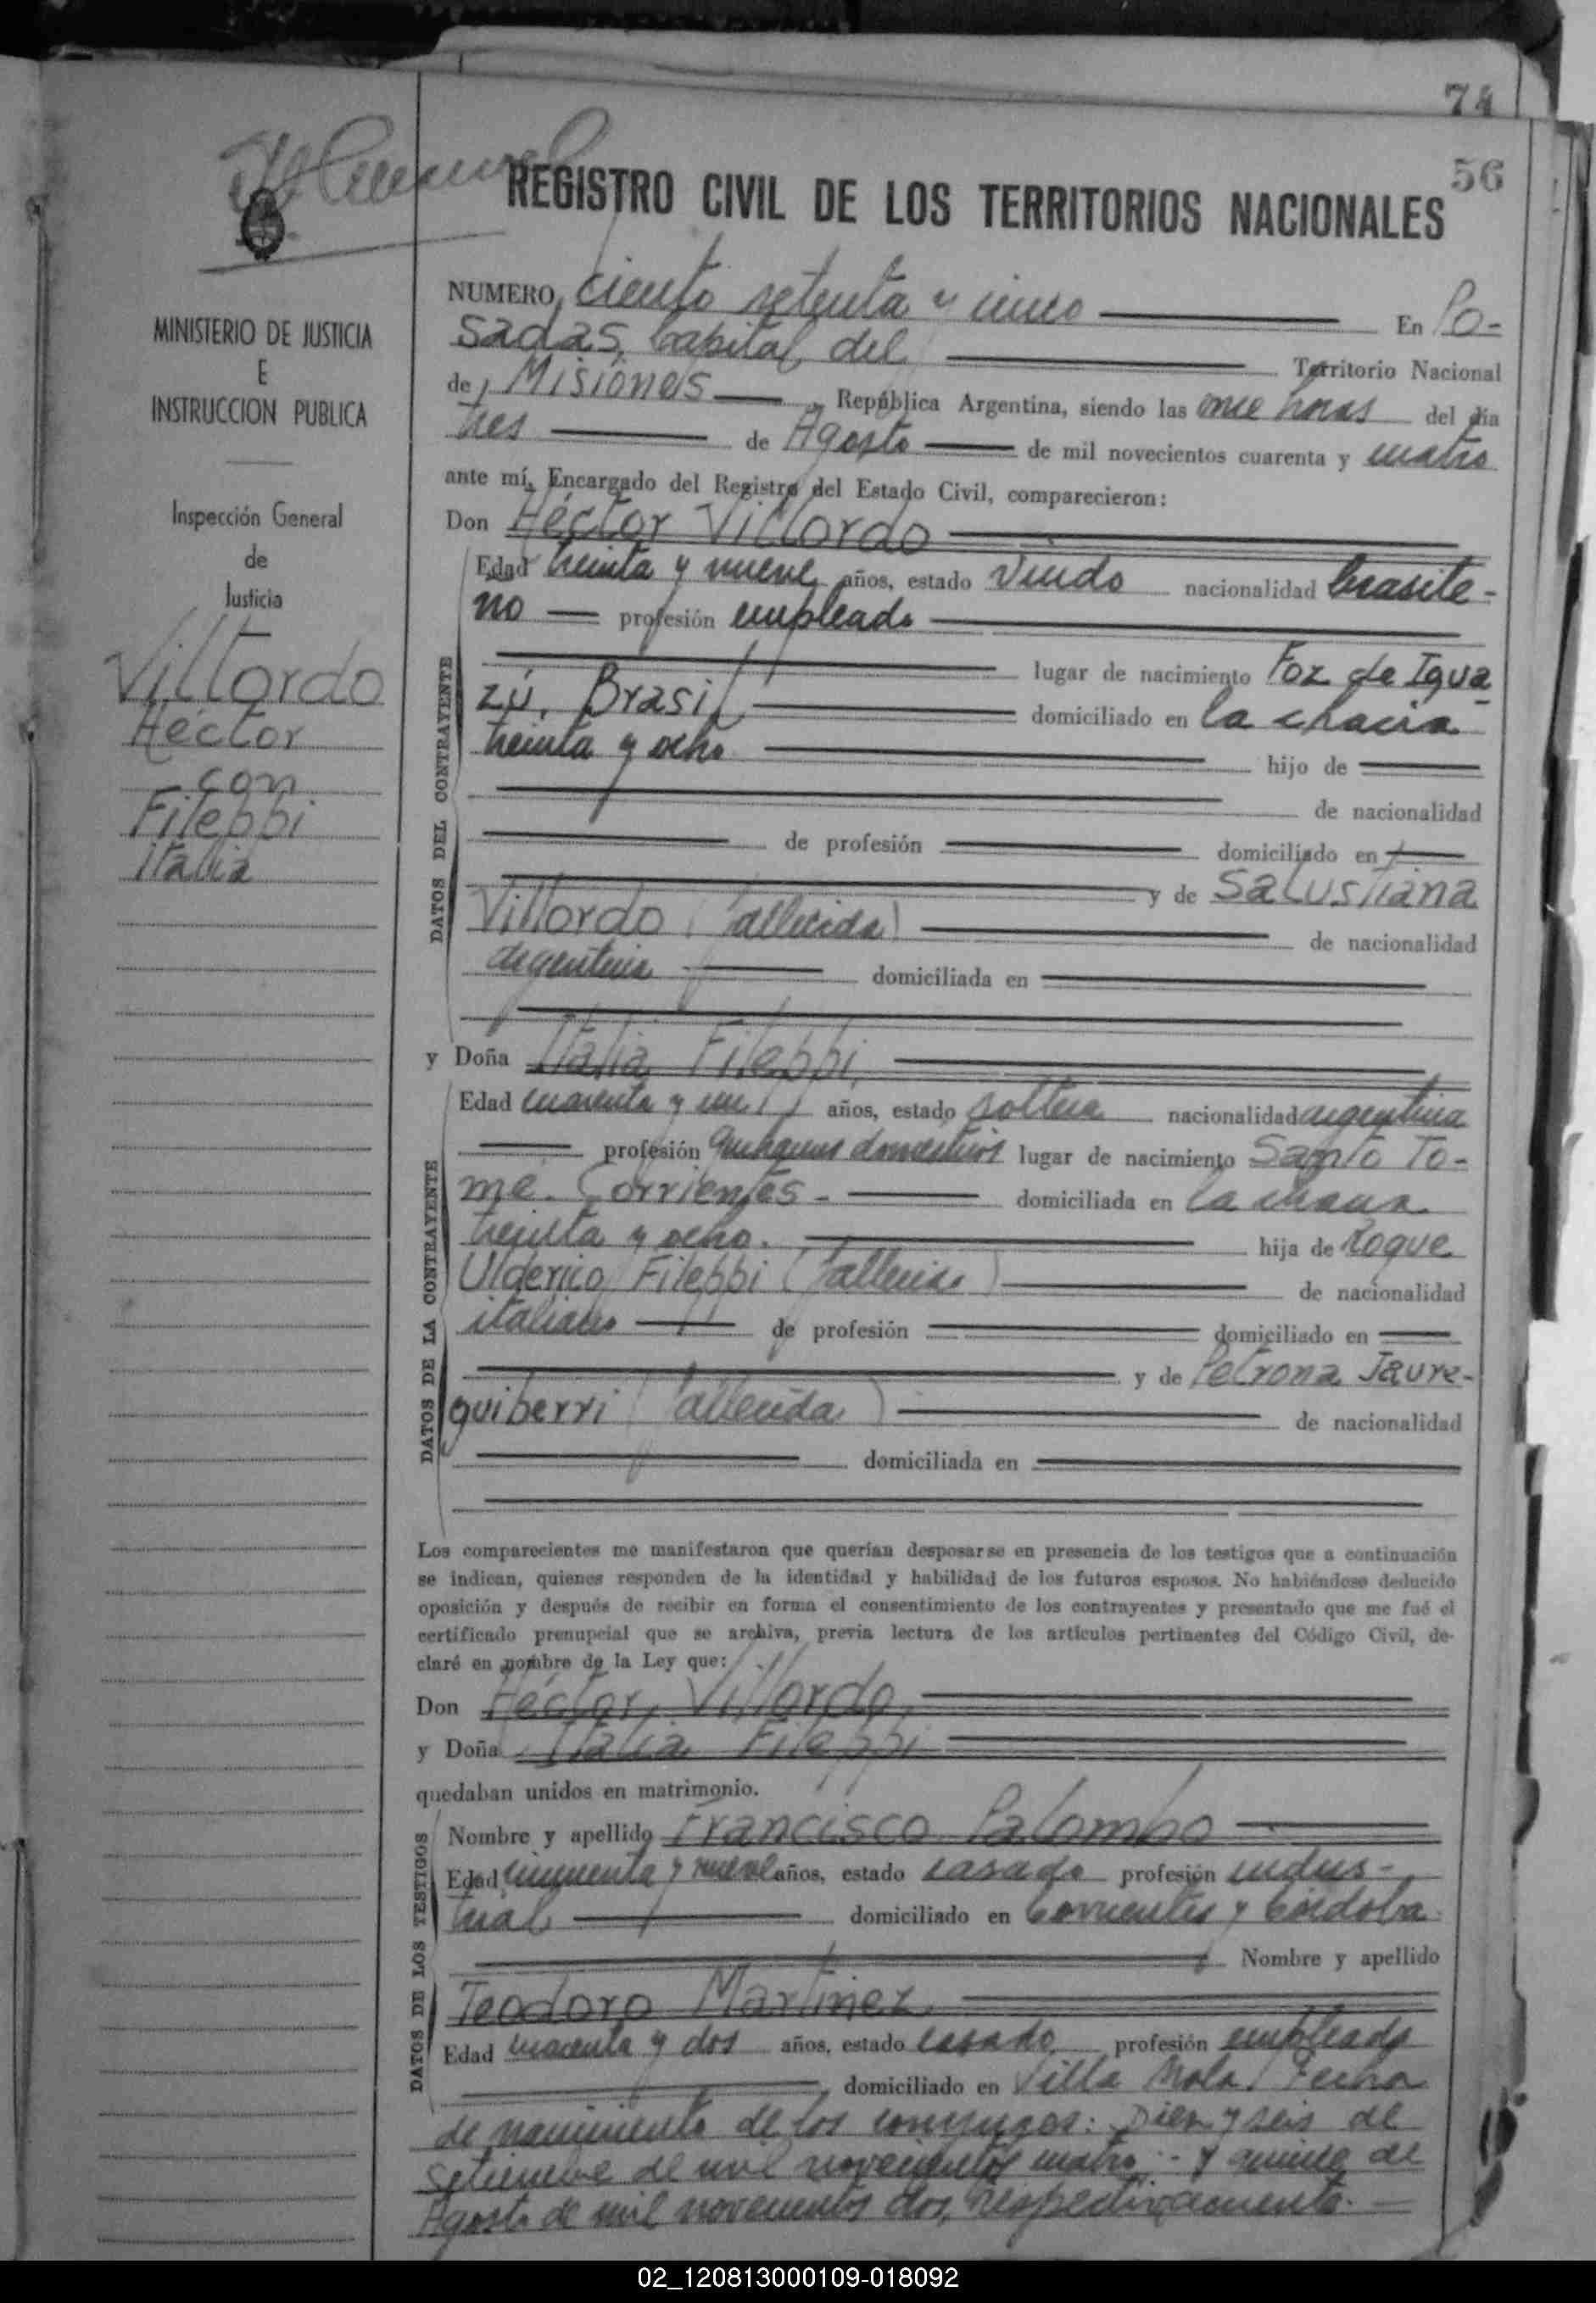 74
56
REGISTRO CIVIL DE LOS TERRITORIOS NACIONALES
MINISTERIO DE JUSTICIA
E
INSTRUCCION PUBLICA
Inspección General
de
Justicia
Villordo
Héctor
con
Fileppi
Italia
NUMERO ciento setenta y cinco En Po-
sadas, Capital del Territorio Nacional
de Misiones, República Argentina, siendo las once horas del día
tres de Agosto de mil novecientos cuarenta y cuatro
ante mí, Encargado del Registro del Estado Civil, comparecieron:
Don Héctor Villordo
DATOS DEL CONTRAYENTE
Edad treinta y nueve años, estado viudo nacionalidad brasile-
no profesión empleado
lugar de nacimiento Foz de Igua
zú. Brasil domiciliado en la chacra
treinta y ocho hijo de
de nacionalidad
de profesión domiciliado en
y de Salustiana
Villordo (fallecida) de nacionalidad
argentina domiciliada en
y Doña Italia Fileppi.
DATOS DE LA CONTRAYENTE
Edad cuarenta y un años, estado soltera nacionalidad argentina
profesión quehaceres domésticos lugar de nacimiento Santo To-
mé. Corrientes.- domiciliada en la chacra
treinta y ocho. hija de Roque
Ulderico Fileppi (fallecido) de nacionalidad
italiano de profesión domiciliado en
y de Petrona Jaure-
guiberri (fallecida) de nacionalidad
domiciliada en
Los comparecientes me manifestaron que querían desposarse en presencia de los testigos que a continuación
se indican, quienes responden de la identidad y habilidad de los futuros esposos. No habiéndose deducido
oposición y después de recibir en forma el consentimiento de los contrayentes y presentado que me fué el
certificado prenupcial que se archiva, previa lectura de los artículos pertinentes del Código Civil, de-
claré en nombre de la Ley que:
Don Héctor Villordo
y Doña Italia Fileppi
quedaban unidos en matrimonio.
DATOS DE LOS TESTIGOS
Nombre y apellido Francisco Palombo
Edad cincuenta y nueve años, estado casado profesión indus-
trial domiciliado en Corrientes y Córdoba
Nombre y apellido
Teodoro Martinez
Edad cuarenta y dos años, estado casado profesión empleado
domiciliado en Villa Mola. Fecha
de nacimiento de los conyuges: Diez y seis de
Setiembre de mil novecientos cuatro.- y quince de
Agosto de mil novecientos dos, respectivamente.-
02_120813000109-018092